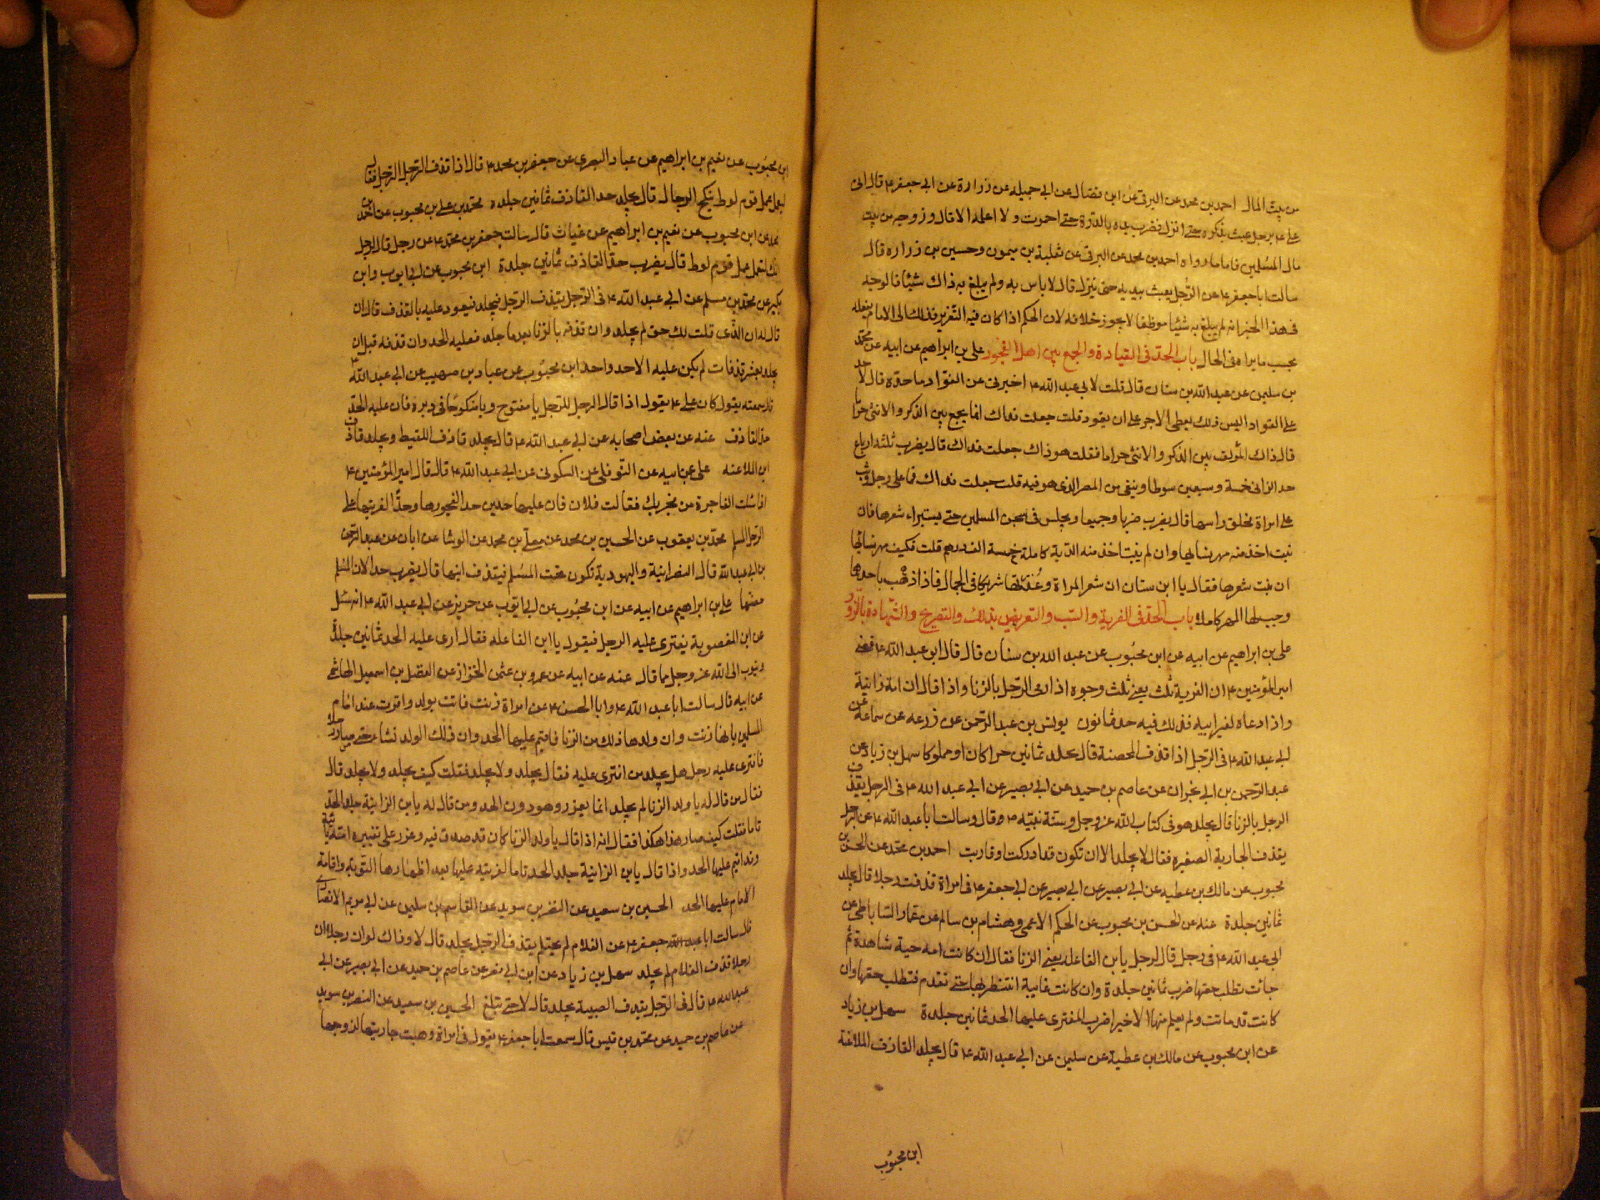 من بيت المال احمد بن محمد عن البرقى عن ابن فضال عن ابى جميله عن زرارة عن ابى جعفر ع قال اتى
على ع برجل عبث بذكره حتى انزل فضرب يده بالدرة حتى احمرت ولا اعلمه الا قال وزوجه من بيت
مال المسلمين فاما ما رواه احمد بن محمد عن البرقى عن ثعلبة بن ميمون وحسين بن زرارة قال
سالت ابا جعفر ع عن الرجل يعبث بيديه حتى ينزل قال لا باس به ولم يبلغ به ذاك شيئا فالوجه
فى هذا الخبر انه لم يبلغ به شيئا موظفا لا يجوز خلافه لان الحكم اذا كان فيه التعزير فذلك الى الامام يفعله
بحسب ما يراه فى الحال باب الحد فى القيادة والجمع بين اهل الفجور على بن ابراهيم عن ابيه عن محمد
بن سليمن عن عبد الله بن سنان قال قلت لابى عبد الله ع اخبرنى عن القواد ما حده قال لا حد
على القواد اليس ذلك يعطى الاجر على ان يقود قلت جعلت فداك انما يجمع بين الذكر والانثى حراما
قال ذاك المؤلف بين الذكر والانثى حراما فقلت هو ذاك جعلت فداك قال يضرب ثلثة ارباع
حد الزانى خمسة وسبعين سوطا وينفى من المصر الذى هو فيه قلت جعلت فداك فما على رجل وثب
على امراة فحلق راسها قال يضرب ضربا وجيعا ويحبس فى سجن المسلمين حتى يستبراء شعرها فان
نبت اخذ منه مهر نسائها وان لم ينبت اخذ منه الدية كاملة خمسة الف درهم قلت فكيف مهر نسائها
ان نبت شعرها فقال يا ابن سنان ان شعر المراة وعذرتها شريكان فى الجمال فاذا ذهب باحدهما
وجب لها المهر كاملا باب الحد فى الفرية والسب والتعريض بذلك والتصريح والشهادة بالزور
على بن ابراهيم عن ابيه عن ابن محبوب عن عبد الله بن سنان قال قال ابو عبد الله ع قضى
امير المؤمنين ع ان الفرية ثلث يعنى ثلث وجوه اذا رمى الرجل بالزنا واذا قال ان امه زانية
واذا دعاه لغير ابيه فذلك فيه حد ثمانون يونس بن عبد الرحمن عن زرعه عن سماعة عن
ابى عبد الله ع فى الرجل اذا قذف المحصنة قال يجلد ثمانين حرا كان او مملوكا سهل بن زياد عن
عبد الرحمن بن ابى نجران عن عاصم بن حميد عن ابى بصير عن ابى عبد الله ع فى الرجل يقذف
الرجل بالزنا قال يجلد هو فى كتاب الله عز وجل وسنة نبيه ص وقال وسالت ابا عبد الله ع عن الرجل
يقذف الجارية الصغيرة فقال لا يجلد الا ان تكون قد ادركت وقاربت احمد بن محمد عن الحسن بن
محبوب عن مالك بن عطيه عن ابى بصير عن ابى بصير عن ابى جعفر ع فى امراة قذفت رجلا قال يجلد
ثمانين جلدة عنه عن الحسن بن محبوب عن الحكم الاعمى وهشام بن سالم عن عمار الساباطى عن
ابى عبد الله ع فى رجل قال لرجل يا بن الفاعله يعنى الزنا فقال ان كانت امه حية شاهدة ثم
جائت تطلب حقها ضرب ثمانين جلدة وان كانت غايبة انتظر بها حتى تقدم فتطلب حقها وان
كانت قد ماتت ولم يعلم منها الا خير اضرب المفترى عليها الحد ثمانين جلدة سهل بن زياد
عن ابن محبوب عن مالك بن عطية عن سليمن عن ابى عبد الله ع قال يجلد القاذف الملاعنة
ابن محبوب
ابن محبوب عن نعيم بن ابراهيم عن عباد البصرى عن جعفر بن محمد ع قال اذا قذف الرجل الرجل فقال
انك لتعمل عمل قوم لوط تنكح الرجال قال يجلد حد القاذف ثمانين جلدة محمد بن على بن محبوب عن احمد بن
محمد عن ابن محبوب عن نعيم بن ابراهيم عن غياث قال سالت جعفر بن محمد ع عن رجل قال لرجل
انك لتعمل عمل قوم لوط قال يضرب حد القاذف ثمانين جلدة ابن محبوب عن ابى ايوب وابن
بكير عن محمد بن مسلم عن ابى عبد الله ع فى الرجل يقذف الرجل فيجلد فيعود عليه بالقذف قال ان
قال له ان الذى قلت لك حق لم يجلد وان قذفه بالزنا بعد ما جلد فعليه الحد وان قذفه قبل ان
يجلد بعشر قذفات لم يكن عليه الا حد واحد ابن محبوب عن عباد بن صهيب عن ابى عبد الله ع
قال سمعته يقول كان على ع يقول اذا قال الرجل للرجل يا مفتوح ويا منكوحا فى دبره فان عليه الحد
حد القاذف عنه عن بعض اصحابه عن ابى عبد الله ع قال يجلد قاذف اللقيط ويجلد قاذف
ابن الملاعنه على عن ابيه عن النوفلى عن السكونى عن ابى عبد الله ع قال قال امير المؤمنين ع
اذا سئلت الفاجرة من فجر بك فقالت فلان فان عليها حدين حدا لفجورها وحدا لفريتها على
الرجل المسلم محمد بن يعقوب عن الحسين بن محمد عن معلى بن محمد عن الوشا عن ابان عن عبد الرحمن
بن ابى عبد الله قال النصرانية واليهودية تكون تحت المسلم فيقذف ابنها قال يضرب حدا لان المسلم
حصنها على بن ابراهيم عن ابيه عن ابن محبوب عن ابى ايوب عن حريز عن ابى عبد الله ع انه سئل
عن ابن المغصوبة يفترى عليه الرجل فيقول يا ابن الفاعله فقال ارى عليه الحد ثمانين جلدة
ويتوب الى الله عز وجل مما قال عنه عن ابيه عن عمرو بن عثمن الخزاز عن الفضل بن اسمعيل الهاشمى
عن ابيه قال سالت ابا عبد الله ع وابا الحسن ع عن امراة زنت فاتت بولد واقرت عند امام
المسلمين بانها زنت وان ولدها ذلك من الزنا فاقيم عليها الحد وان ذلك الولد نشا حتى صار رجلا
فافترى عليه رجل هل يجلد من افترى عليه فقال يجلد ولا يجلد فقلت كيف يجلد ولا يجلد قال
فقال من قال له يا ولد الزنا لم يجلد انما يعزر وهو دون الحد ومن قال له يا بن الزانية جلد الحد
تاما فقلت كيف صار هذا هكذا فقال انه اذا قال يا ولد الزنا كان قد صدق فيه وعزر على تعييره امه ثانية
وقد اقيم عليها الحد واذا قال يا بن الزانية جلد الحد تاما لفريته عليها بعد اظهارها التوبة واقامة
الامام عليها الحد الحسين بن سعيد عن النضر بن سويد عن القاسم بن سليمن عن ابى مريم الانصارى
قال سالت ابا عبد الله جعفر ع عن الغلام لم يحتلم يقذف الرجل يجلد قال لا وذاك لو ان رجلا
رجلا قذف الغلام لم يجلد سهل بن زياد عن ابن ابى نصر عن عاصم بن حميد عن ابى بصير عن ابى
عبد الله ع قال فى الرجل يقذف الصبية يجلد قال لا حتى تبلغ الحسين بن سعيد عن النضر بن سويد
عن عاصم بن حميد عن محمد بن قيس قال سمعت ابا جعفر ع يقول فى امراة وهبت جاريتها لزوجها